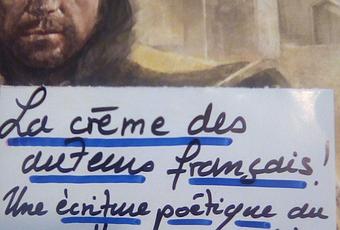 La crème des
auteurs français!
Une écriture poétique du